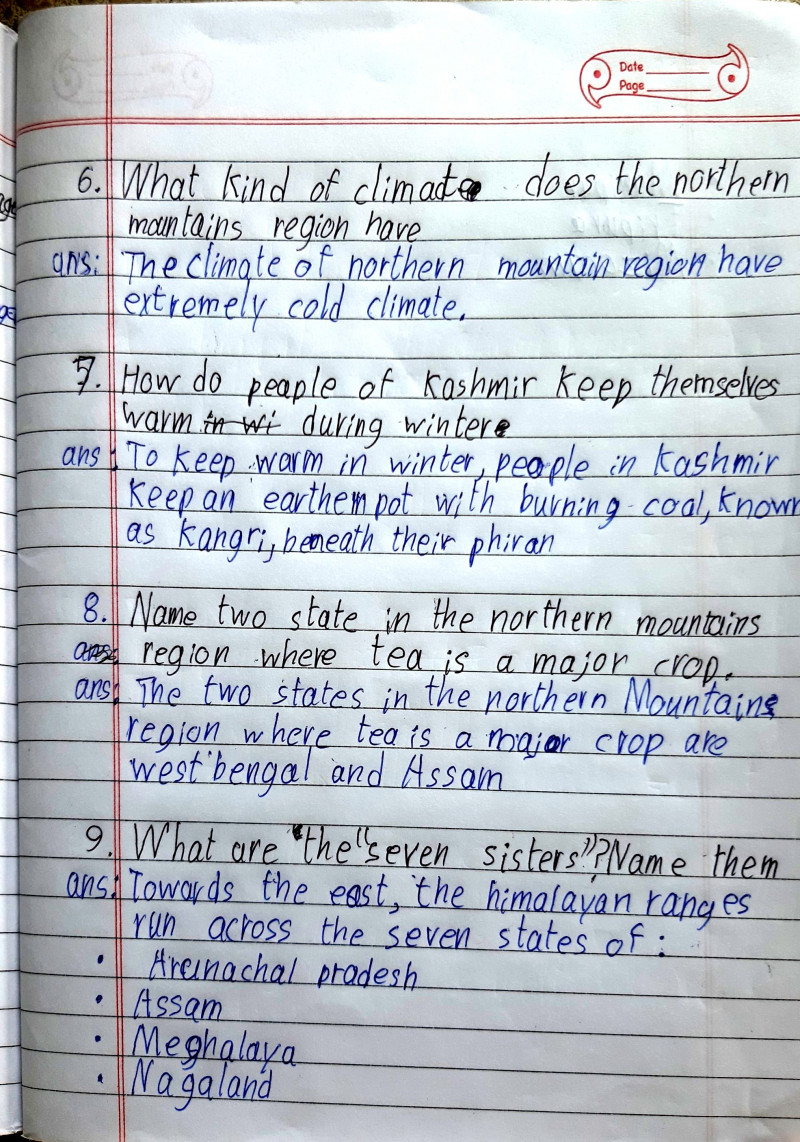 Date
Page
6. What kind of climate does the northern
mountains region have
ans: The climate of northern mountain region have
extremely cold climate.
7. How do people of Kashmir keep themselves
warm in wi during winter
ans: To keep warm in winter, people in Kashmir
keep an earthem pot with burning coal, known
as Kangri, beneath their phiran
8. Name two state in the northern mountains
region where tea is a major crop.
ans: The two states in the northern Mountains
region where tea is a major crop are
west bengal and Assam
9. What are "the "seven sisters"? Name them
ans: Towards the east, the himalayan ranges
run across the seven states of:
• Arunachal pradesh
• Assam
• Meghalaya
• Nagaland